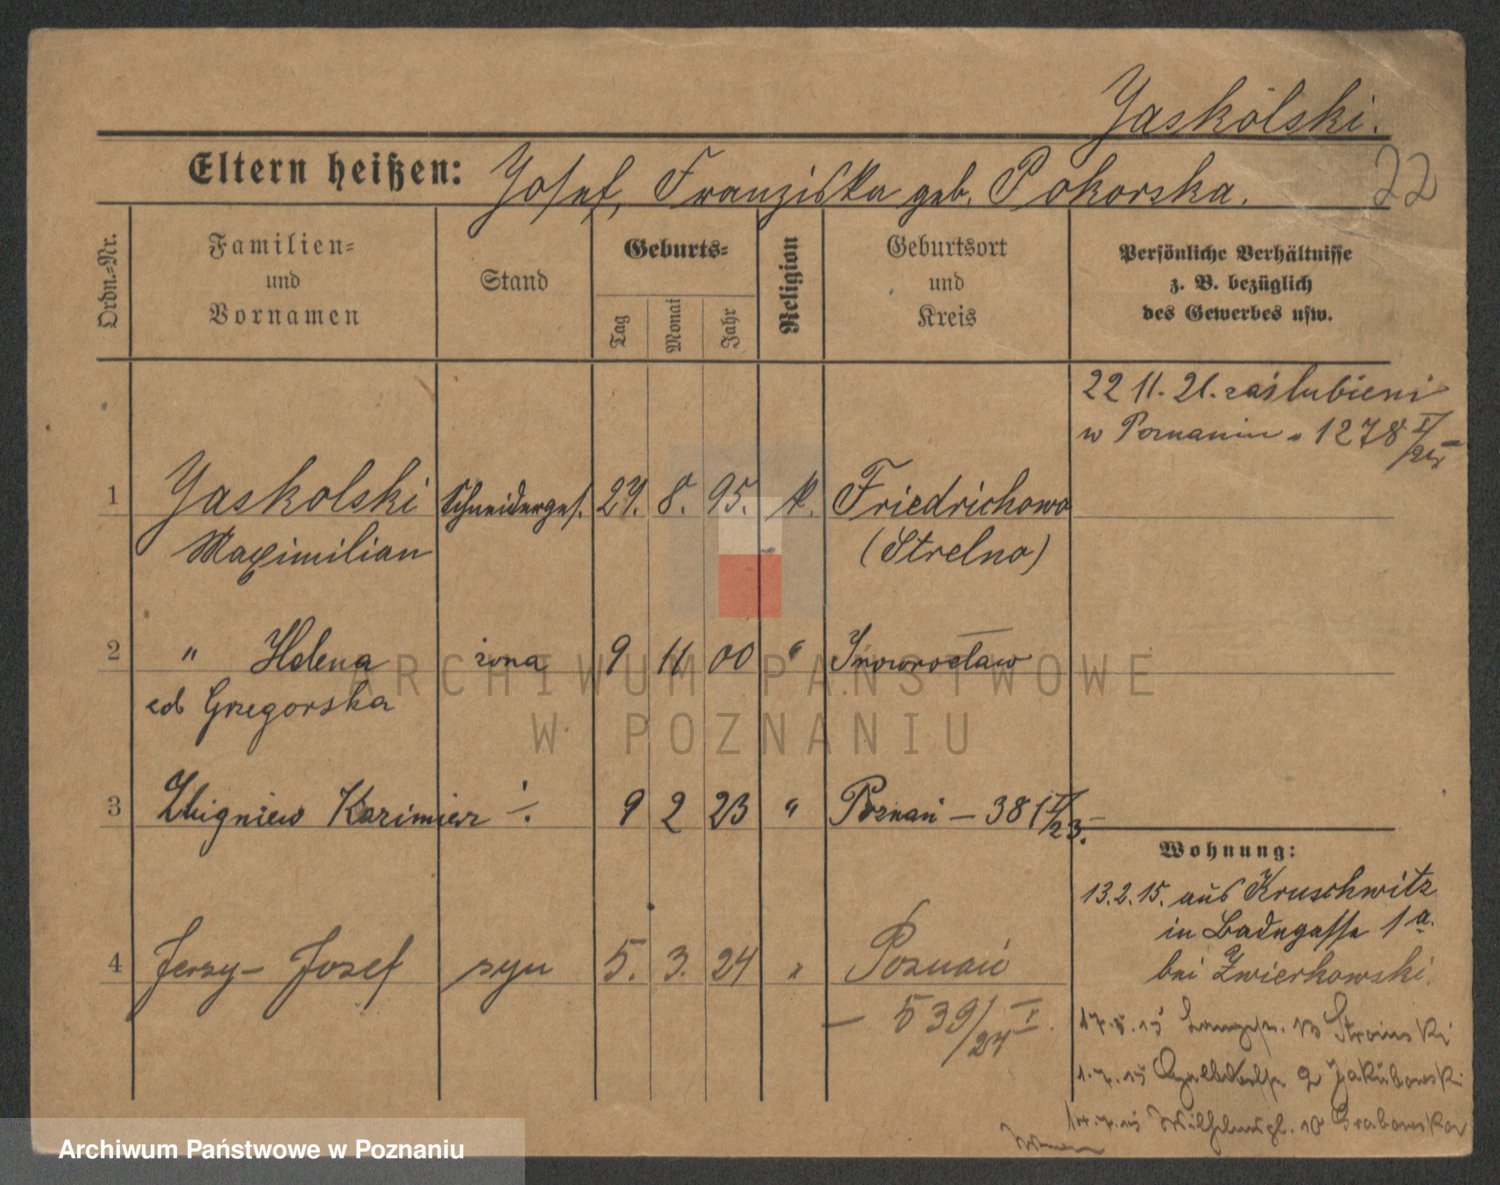 Jaskólski.
Eltern heißen: Josef, Franziska geb. Pokorska.
22
Ordn.=Nr.
Familien=
und
Vornamen
Stand
Geburts=
Tag
Monat
Jahr
Religion
Geburtsort
und
Kreis
Persönliche Verhältnisse
z. B. bezüglich
des Gewerbes usw.
22 11. 21. zaślubieni
w Poznaniu 1278 I/21
1 Jaskolski Schneiderges. 29. 8. 95. k. Friedrichowo
Maximilian (Strelno)
2 " Helena żona 9 11 00 " Inowrocław
Grzegorska
3 Zbigniew Kazimierz 9 2 23 " Poznań – 381 I/23.
Wohnung:
13.2.15. aus Kruschwitz
in Badegasse 1a.
bei Zwierkowski.
4 Jerzy – Josef syn 5. 3. 24 " Poznań
– 539/24 I.
Stroinski
1.7.15 2 Jakubowski
Wilhelmspl. 10 Grabowska
ARCHIWUM PAŃSTWOWE
W POZNANIU
Archiwum Państwowe w Poznaniu